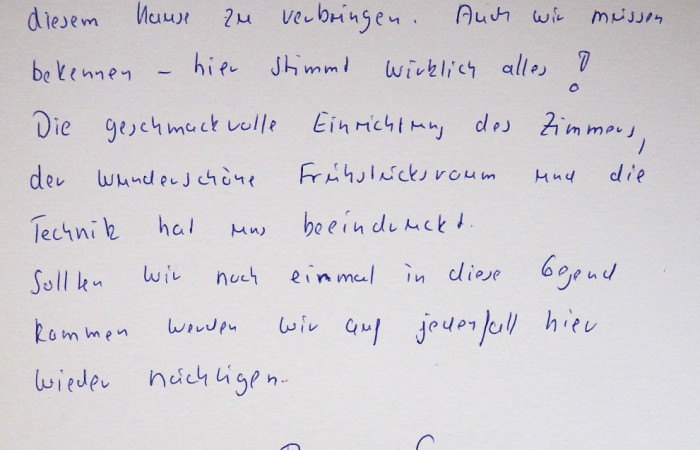 diesem Hause zu verbringen. Auch wir müssen
bekennen – hier stimmt wirklich alles!
Die geschmackvolle Einrichtung des Zimmers,
der wunderschöne Frühstücksraum und die
Technik hat uns beeindruckt.
Sollten wir noch einmal in diese Gegend
kommen werden wir auf jedenfall hier
wieder nächtigen.